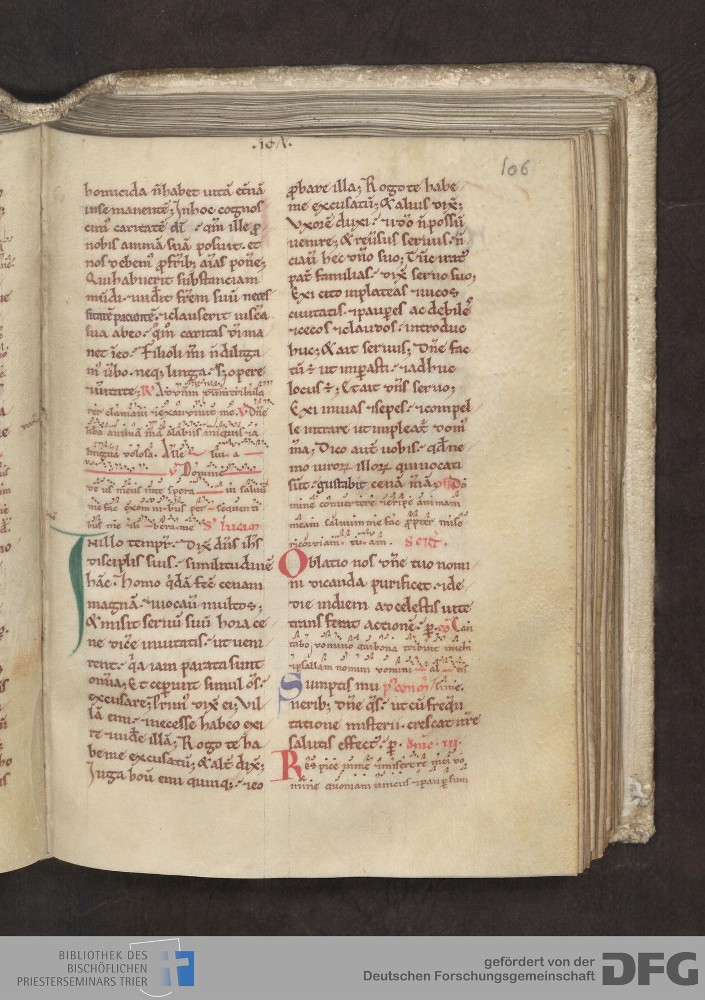 106
homicida ñ habet uitã et̃nã
in se manentẽ; In hoc cognoui
mus caritatẽ dĩ · qm̃ ille p̱
nobis animã suã posuit · et
nos debem᷒ p̱ frĩb; aĩas pone᷒;
Qui habuerit substanciam
mũdi · ⁊ uid̃it fr̃em suũ neces
sitatẽ pacientẽ · ⁊ clauserit uiscẽa
sua ab eo · qm̃ caritas dĩ ma
net ĩ eo · Filioli mĩ ñ diliga
m᷒ ũbo · neq; lingua · s; opere
⁊ ũitate; Ad dñm dum tribula
rer clamaui ⁊ exaudiuit me. V Dñe
liba anima mẽa a labiis iniquis ⁊ a
lingua dolosa. Alle
V Domine
ds ms in te spera ui saluũ
me fac ex om nibus per sequenti
bus me & libera me S. lucam
In illo tempr̃. Dix̃ dñs ihs̃
discipĩis suis · similitudinẽ
hãc · Homo qdã fec̃ cenam
magnã · ⁊ uocauit multos;
& misit seruũ suũ hora ce
ne dic̃e inuitatis · ut ueni
rent · q̃a iam parata sunt
om̃ia; Et ceperunt simul om̃s
excusare; Prim᷒ dix̃ ei; Vil
lã emi · ⁊ necesse habeo exi
re ⁊ uid̃e illã; Rogo te ha
be me excusatũ; & alt̃ dix̃;
Iuga boũ emi quinq; · ⁊ eo
p̱bare illa; Rogo te habe
me excusatũ; & alius dix̃;
Vxorẽ duxi · ⁊ iõ ñ possũ
uenire; & reũsus seruus · ñ
ciau̇ hec dño suo; Tũc irat᷒
pat̃ familias · dix̃ seruo suo;
Exi cito in plateas ⁊ uicos
ciuitatis · ⁊ paup̱es ac debiles
⁊ cecos ⁊ claudos · introduc
huc; & ait seruus; Dñe fac
tũ ẽ ut imp̱asti · ⁊ adhuc
locus ẽ; Et ait dñs seruo;
Exi in uias ⁊ sepes · ⁊ compel
le intrare ut impleat᷒ dom᷒
mea; Dico aut̃ uobis · qd̃ ne
mo uiroꝝ illoꝝ qui uocati
sũt · gustabit cenã mẽã Do
mine conuertere ⁊ eripe animam
meam saluum me fac p̱pter mise
ricordiam tu am. Secr̃.
Oblatio nos dñe tuo nomi
ni dicanda purificet · ⁊ de
die in diem ad celestis uite
transferat actionẽ · p̱. cõ Can
tabo domino qui bona tribuit michi
⁊ psallam nomini domini al tis
simi. Sumptis mu p᷒ com̃
nerib; dñe qs̃ · ut cũ freq̃n
tatione misterii · crescat nr̃e
salutis effect᷒ · p̱. dñic̃ . iii.
Respice in me ⁊ miserere mei do
mine quoniam unicus ⁊ paup̱ sum
BIBLIOTHEK DES
BISCHÖFLICHEN
PRIESTERSEMINARS TRIER
gefördert von der
Deutschen Forschungsgemeinschaft
DFG